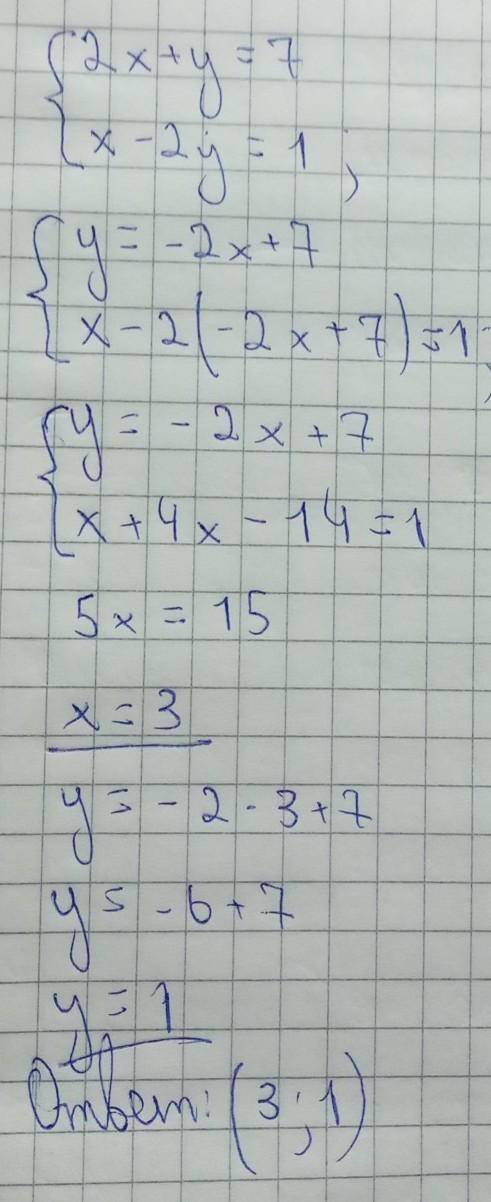 2x+y=7
x-2y=1;
y=-2x+7
x-2(-2x+7)=1;
y=-2x+7
x+4x-14=1
5x=15
x=3
y=-2·3+7
y=-6+7
y=1
Ответ: (3;1)